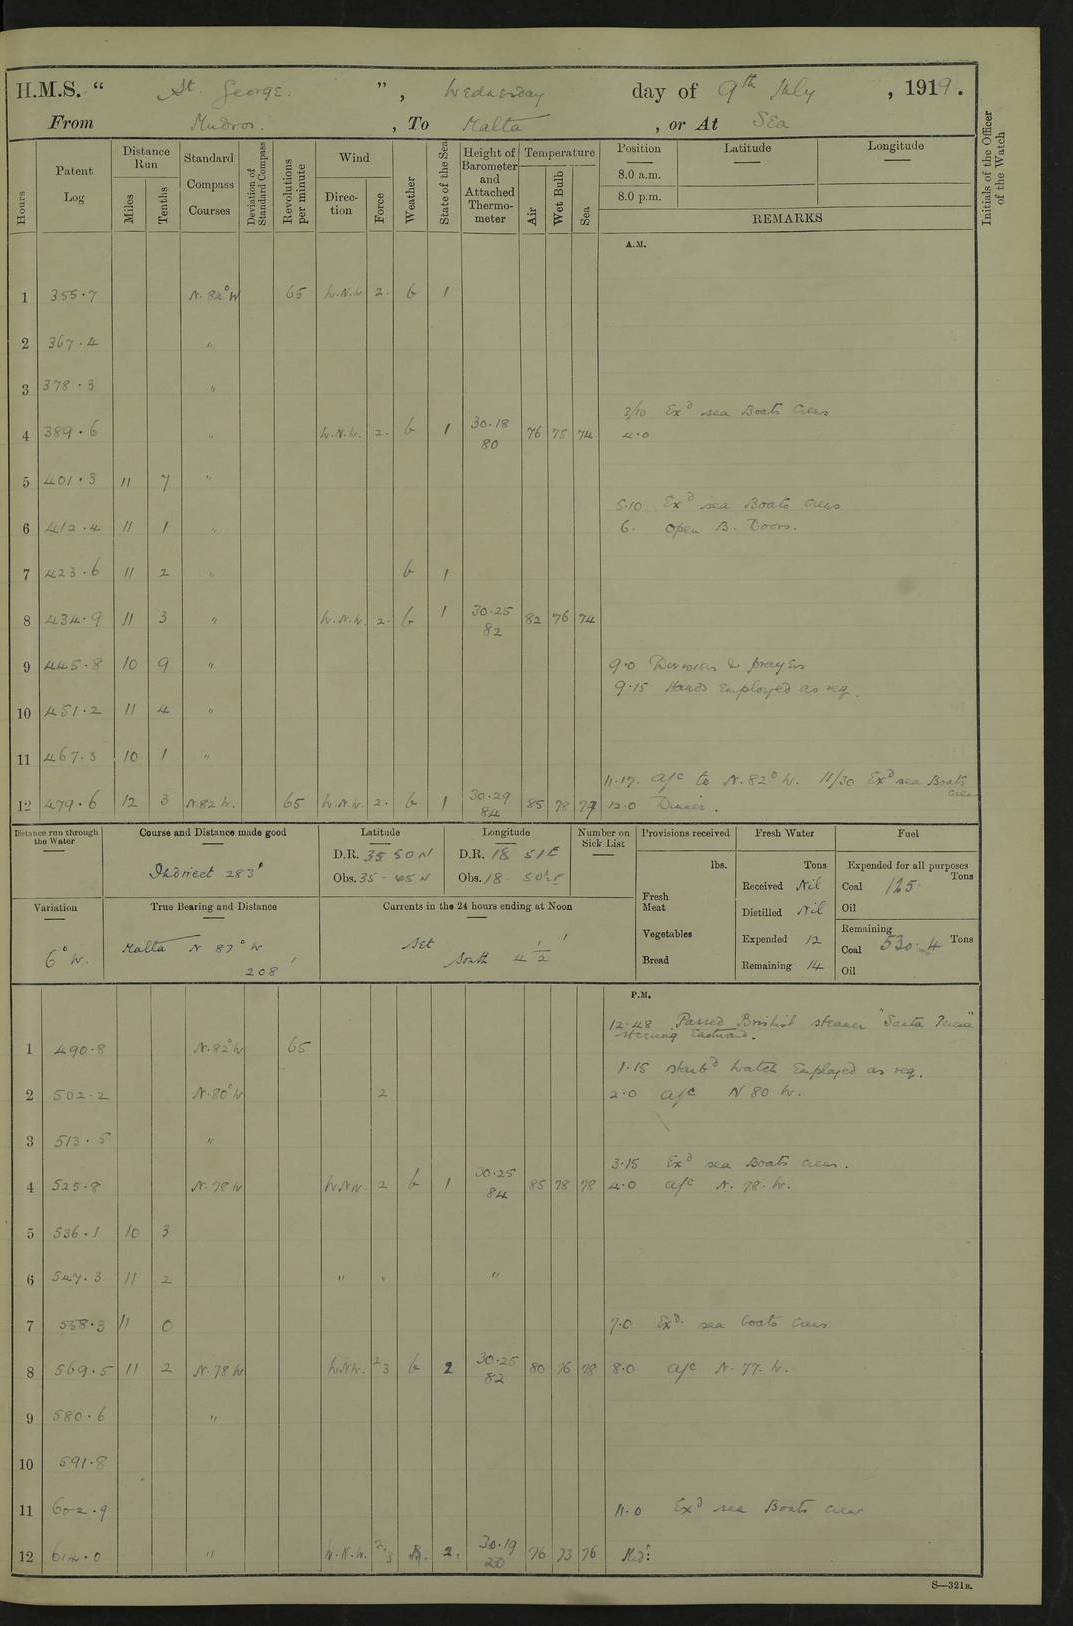 H.M.S. “ St. George. ” , Wednesday day of 9th July , 1919.
From Mudros. , To Malta , or At Sea
Hours
Patent Log
Distance Run
Miles
Tenths
Standard Compass Courses
Deviation of Standard Compass
Revolutions per minute
Wind
Direction
Force
Weather
State of the Sea
Height of Barometer and Attached Thermometer
Temperature
Air
Wet Bulb
Sea
Position
8.0 a.m.
8.0 p.m.
Latitude
Longitude
REMARKS
Initials of the Officer of the Watch
A.M.
1 355.7 N.82°W 65 W.N.W 2. b 1
2 367.4 "
3 378.3 "
3/10 Exd sea Boats Crews
4 389.6 " W.N.W. 2. b 1 30.18 80 76 75 74 4.0
5 401.3 11 7 "
5.10 Exd sea Boats Crews
6 412.4 11 1 " 6. Open B. Doors.
7 423.6 11 2 " b 1
8 434.9 11 3 " W.N.W. 2. b 1 30.25 82 82 76 74
9 445.8 10 9 " 9.0 Divisions & prayers
9.15 Hands Employed as req.
10 451.2 11 4 "
11 467.3 10 1 "
11.17. a/c to N.82° W. 11/30 Exd sea Boats Crew
12 479.6 12 3 N.82 W. 65 W.N.W. 2. b 1 30.29 84 85 78 77 12.0 Dinner.
Distance run through the Water
Course and Distance made good
Indirect 283'
Latitude
D.R. 35 50 N
Obs. 35 - 45 N
Longitude
D.R. 18 51 E
Obs. 18 50½ E
Number on Sick List
Provisions received
lbs.
Fresh Meat
Vegetables
Bread
Fresh Water
Tons
Received Nil
Distilled Nil
Expended 12
Remaining 14
Fuel
Expended for all purposes
Tons
Coal 125.
Oil
Remaining
Coal 530.4 Tons
Oil
Variation
6° W.
True Bearing and Distance
Malta N 87° W
208'
Currents in the 24 hours ending at Noon
Set
South 4½'
P.M.
12.48 Passed British steamer "Santa Teresa"
steering Eastward.
1 490.8 N.82°W 65
1.15 starbd watch Employed as req.
2 502.2 N.80°W 2 2.0 a/c N 80 W.
3 513.5 "
3.15 Exd sea Boats Crews.
4 525.8 N.78 W W.N.W. 2 b 1 30.25 84 85 78 78 4.0 a/c N. 78. W.
5 536.1 10 3
6 547.3 11 2 " " "
7 558.3 11 0 7.0 Exd. sea boats Crews
8 569.5 11 2 N.78 W W.N.W. 2 3 b 2 30.25 82 80 76 78 8.0 a/c N. 77. W.
9 580.6 "
10 591.8
11 602.9 11.0 Exd sea Boats Crew
12 614.0 " W.N.W. 2.3 B. 2. 30.19 76 73 76
S—321B.